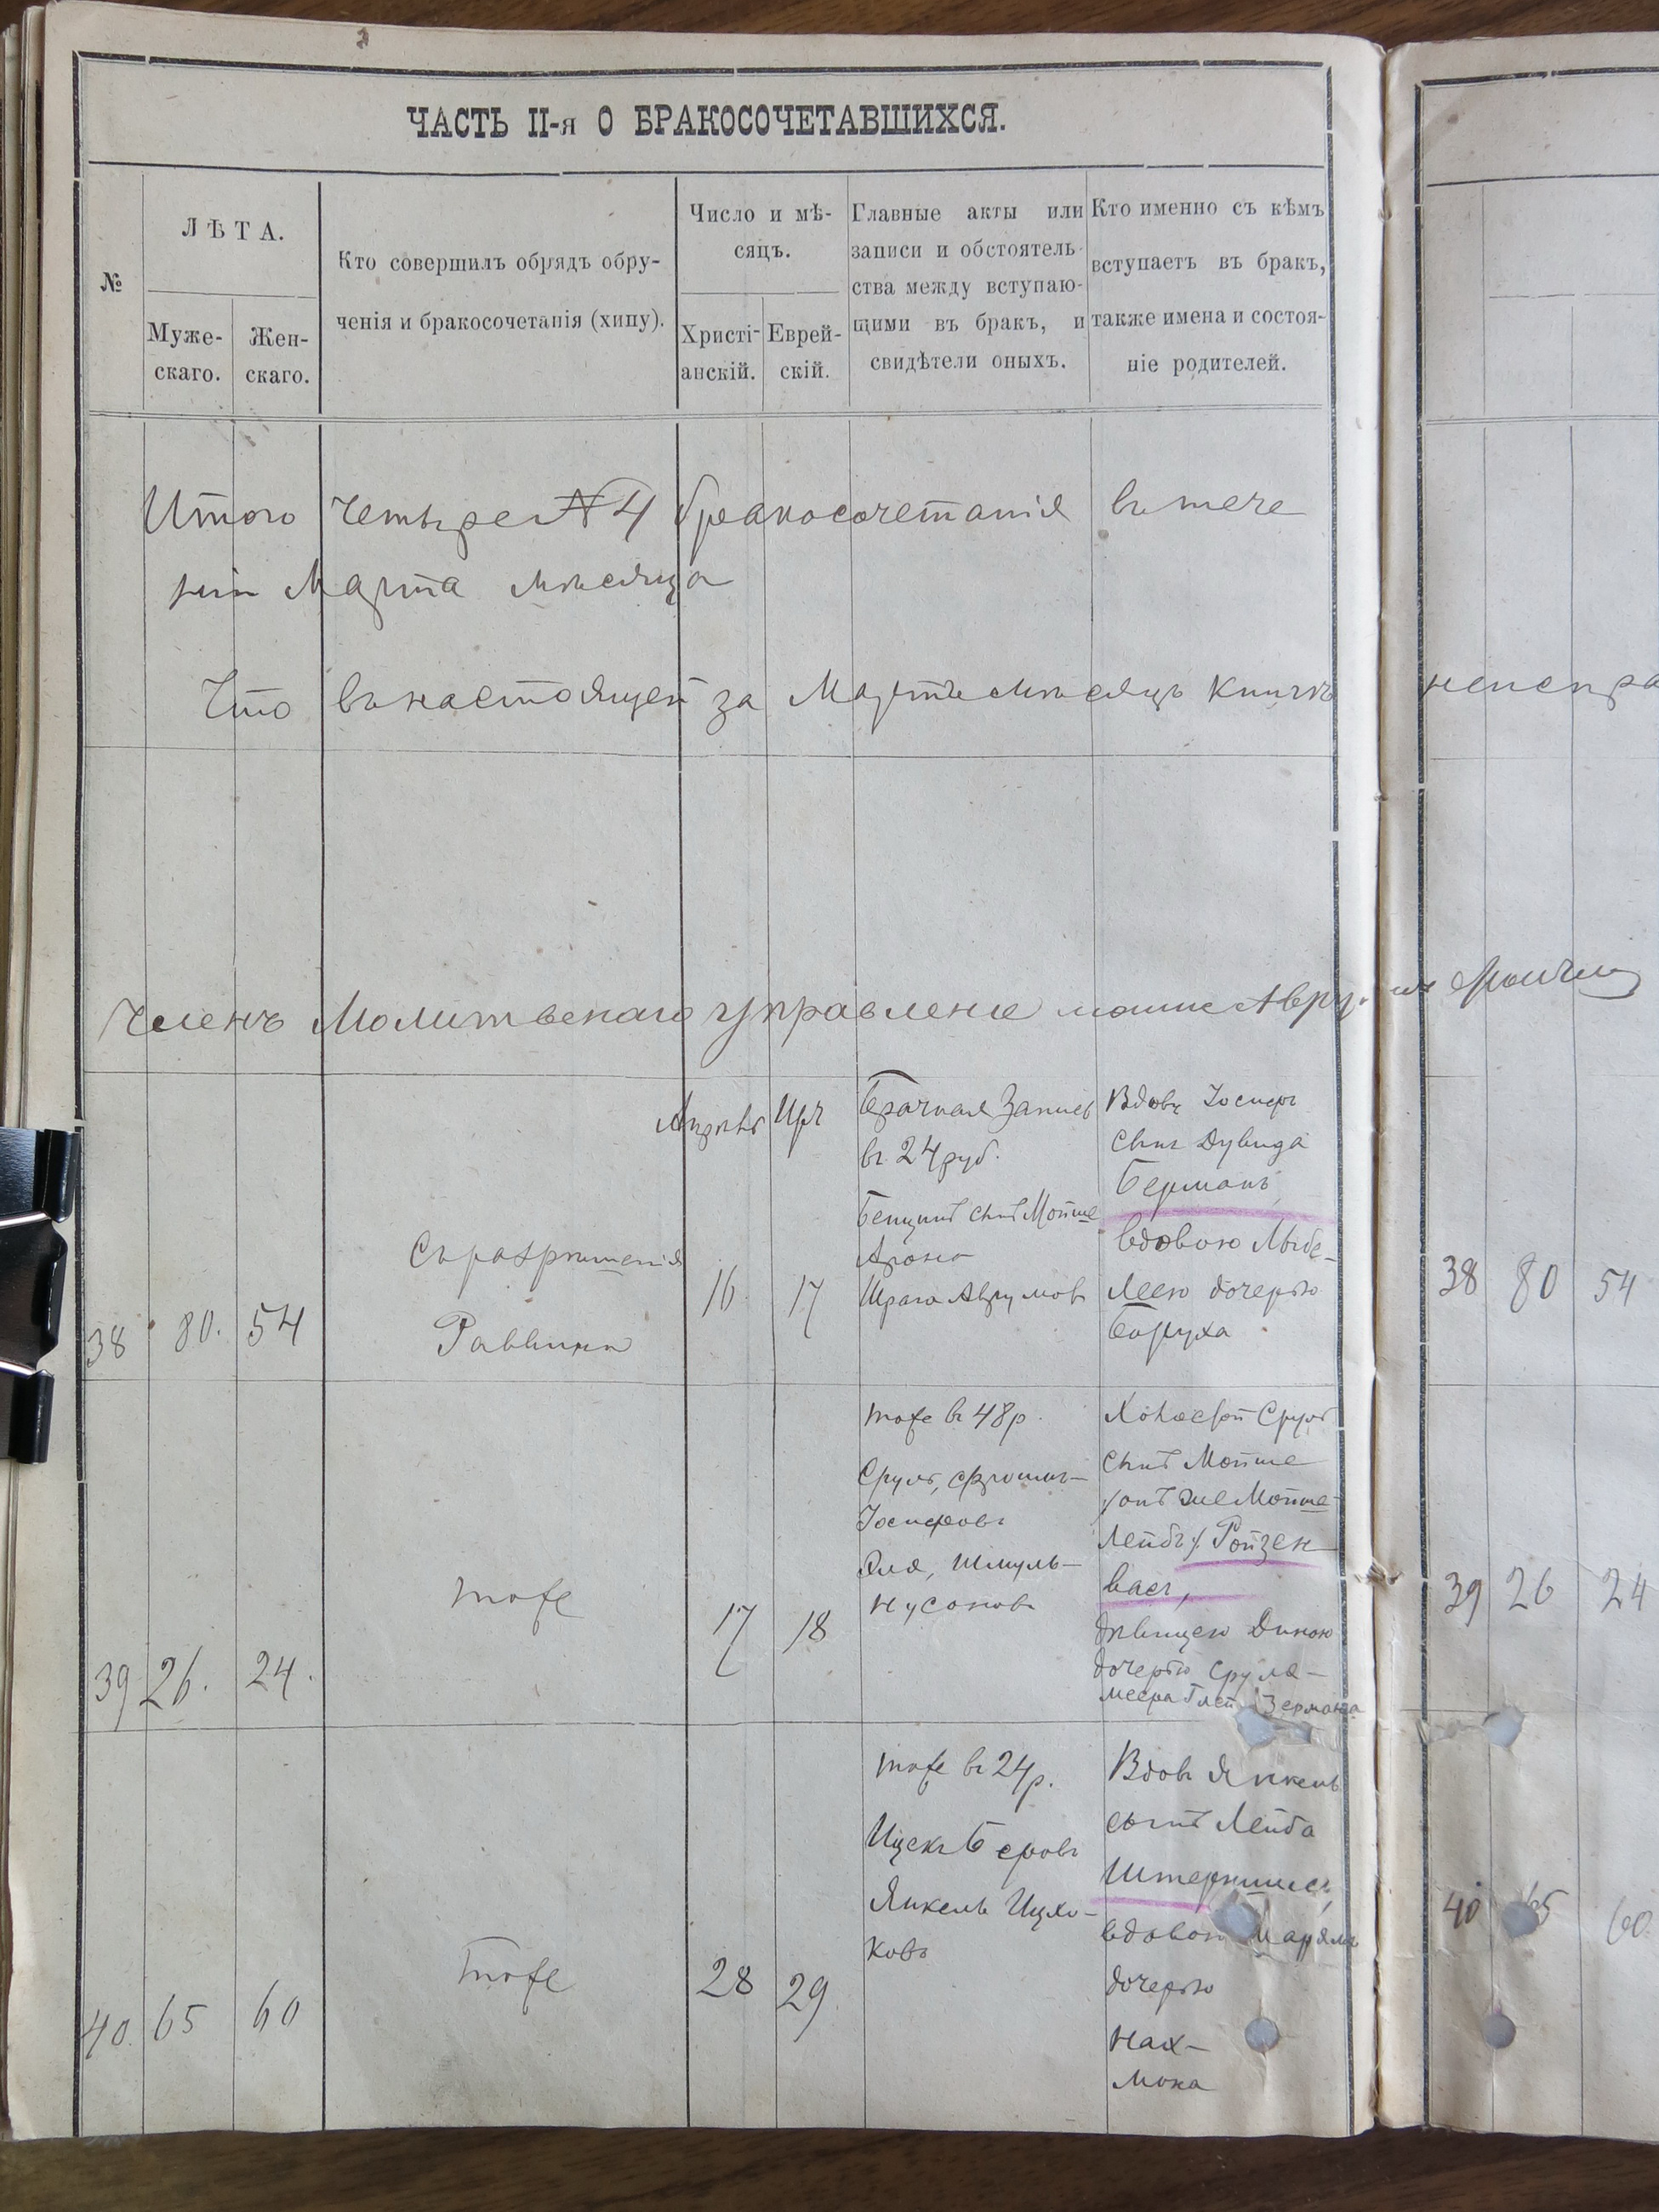 ЧАСТЬ II-я О БРАКОСОЧЕТАВШИХСЯ.
№
ЛѢТА.
Муже-
скаго.
Жен-
скаго.
Кто совершилъ обрядъ обру-
ченія и бракосочетанія (хипу).
Число и мѣ-
сяцъ.
Христі-
анскій.
Еврей-
скій.
Главные акты или
записи и обстоятель-
ства между вступаю-
щими въ бракъ, и
свидѣтели оныхъ.
Кто именно съ кѣмъ
вступаетъ въ бракъ,
также имена и состоя-
ніе родителей.
Итого Четыре № 4 бракосочетанія въ тече
ніи Марта мѣсяца
Что въ настоящей за Мартъ мѣсяцъ книгѣ
Членъ Молитвенаго управленіе мошие Авру
38
80.
54
Съ разрѣшенія
Раввина
Апрѣль
16
Иръ
17
Брачная Запись
въ 24 руб.
Бенционъ сынъ Мойше
Арона
Шрага Аврумовъ
Вдовъ Іосифъ
сынъ Дувида
Берманъ
вдовою
Леею дочерью
Боруха
39
26.
24.
тоже
17
18
тоже въ 48 р.
Сруль, Фроимъ-
Іосифовъ
Эля, Шмуль-
Нусоновъ
Холостой Сруль
сынъ Мойше
/онъ же Мойше-
Лейбъ/ Ройзен-
васъ,
дѣвицею Диною
дочерью Сруля-
Меера Глейзермана
40.
65
60
Тоже
28
29.
тоже въ 24 р.
Ицекъ Беровъ
Янкель Ицхо-
ковъ
Вдовъ Янкель
сынъ Лейба
Штерншисъ,
вдовою Марямъ
дочерью
Нах-
мона
38 80 54
39 26 24
40 65 60